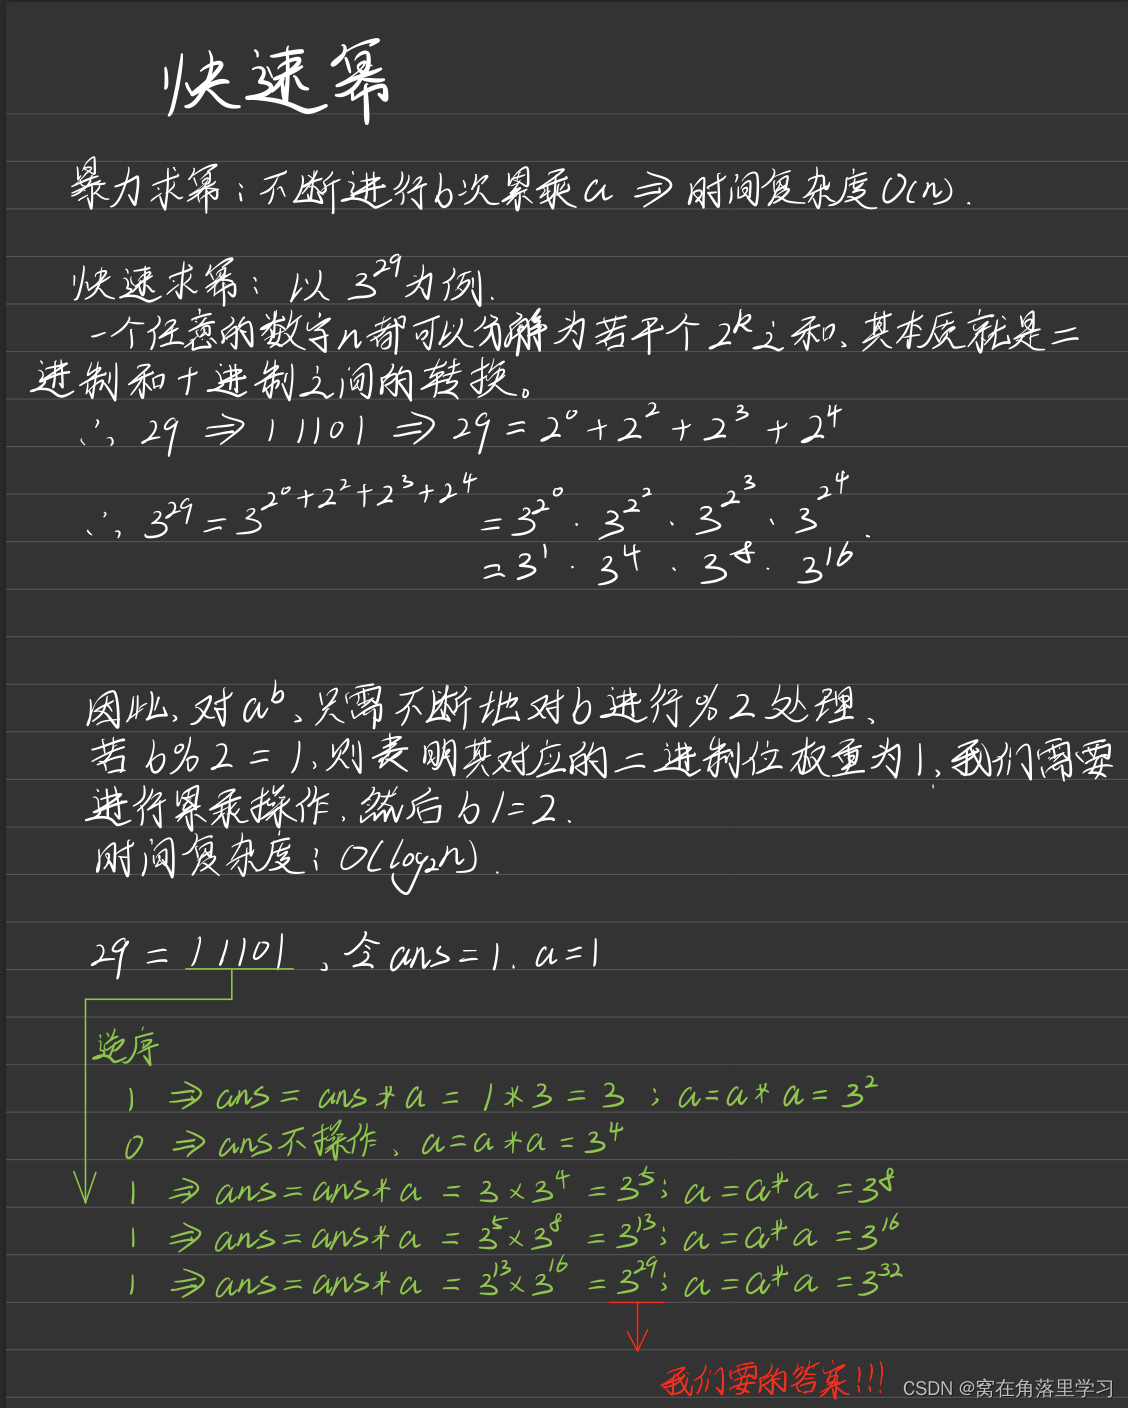 快速幂
暴力求幂:不断进行b次累乘a ⇒ 时间复杂度O(n).
快速求幂: 以 3^29为例.
一个任意的数字n都可以分解为若干个2^k之和、其本质就是二
进制和十进制之间的转换。
∴, 29 ⇒ 11101 ⇒ 29 = 2^0 + 2^2 + 2^3 + 2^4
∴, 3^29 = 3^(2^0+2^2+2^3+2^4) = 3^2^0 · 3^2^2 · 3^2^3 · 3^2^4.
= 3^1 · 3^4 · 3^8 · 3^16
因此、对a^b、只需不断地对b进行%2处理、
若b%2 = 1,则表明其对应的二进制位权重为1,我们需要
进行累乘操作,然后 b /= 2.
时间复杂度: O(log₂n).
29 = 11101 、令ans = 1. a = 1
逆序
1 ⇒ ans = ans * a = 1 * 3 = 3 ; a = a * a = 3^2
0 ⇒ ans不操作、a = a * a = 3^4
1 ⇒ ans = ans * a = 3 × 3^4 = 3^5; a = a * a = 3^8
1 ⇒ ans = ans * a = 3^5 × 3^8 = 3^13; a = a * a = 3^16
1 ⇒ ans = ans * a = 3^13 × 3^16 = 3^29; a = a * a = 3^32
我们要的答案!!!
CSDN @窝在角落里学习